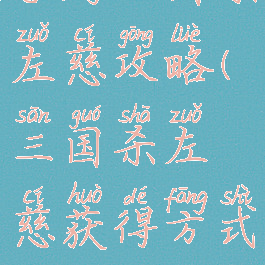 zuǒ cí gōng lüè
左慈攻略(
sān guó shā zuǒ
三国杀左
cí huò dé fāng shì
慈获得方式